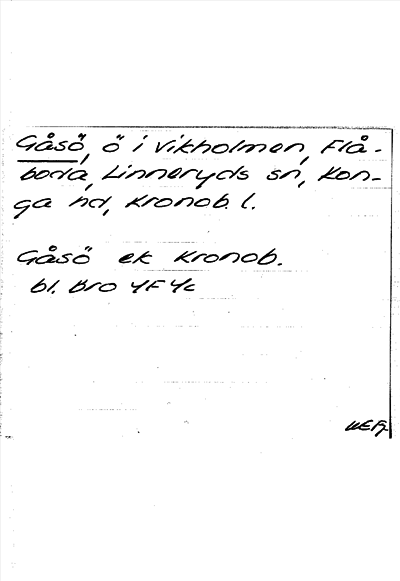 Gåsö, ö i Vikholmen, Flå-
boda, Linneryds sn, Kon-
ga hd, Kronob. l.
Gåsö ek Kronob.
bl. Bro 4F4c